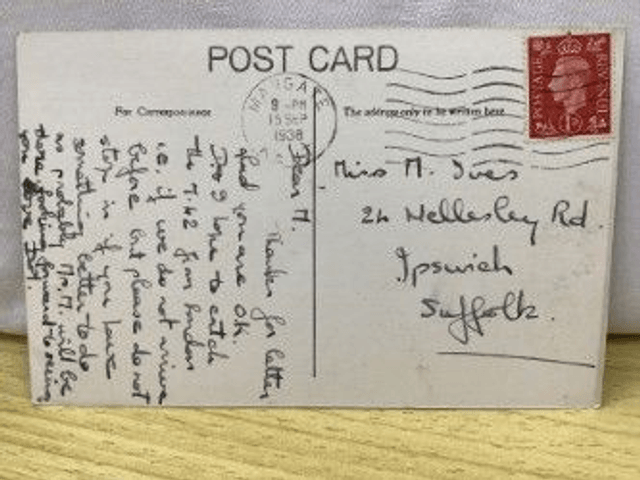 POST CARD
For Correspondence
The address only to be written here
MARGATE
9 - PM
15 SEP
1938
POSTAGE
REVENUE
Dear M.
Thanks for letter
glad you are O.K.
Do I hope to catch
the 7.42 from London
i.e. if we do not arrive
before but please do not
stop in if you have
something better to do
as probably Mr. M. will be
there looking forward to seeing
you
Miss M. Ives
24 Wellesley Rd.
Ipswich
Suffolk.